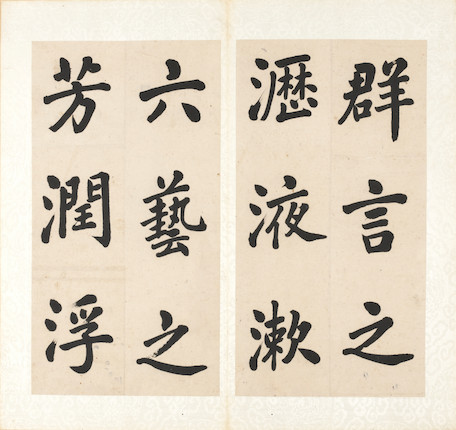 群言之
瀝液漱
六藝之
芳潤浮